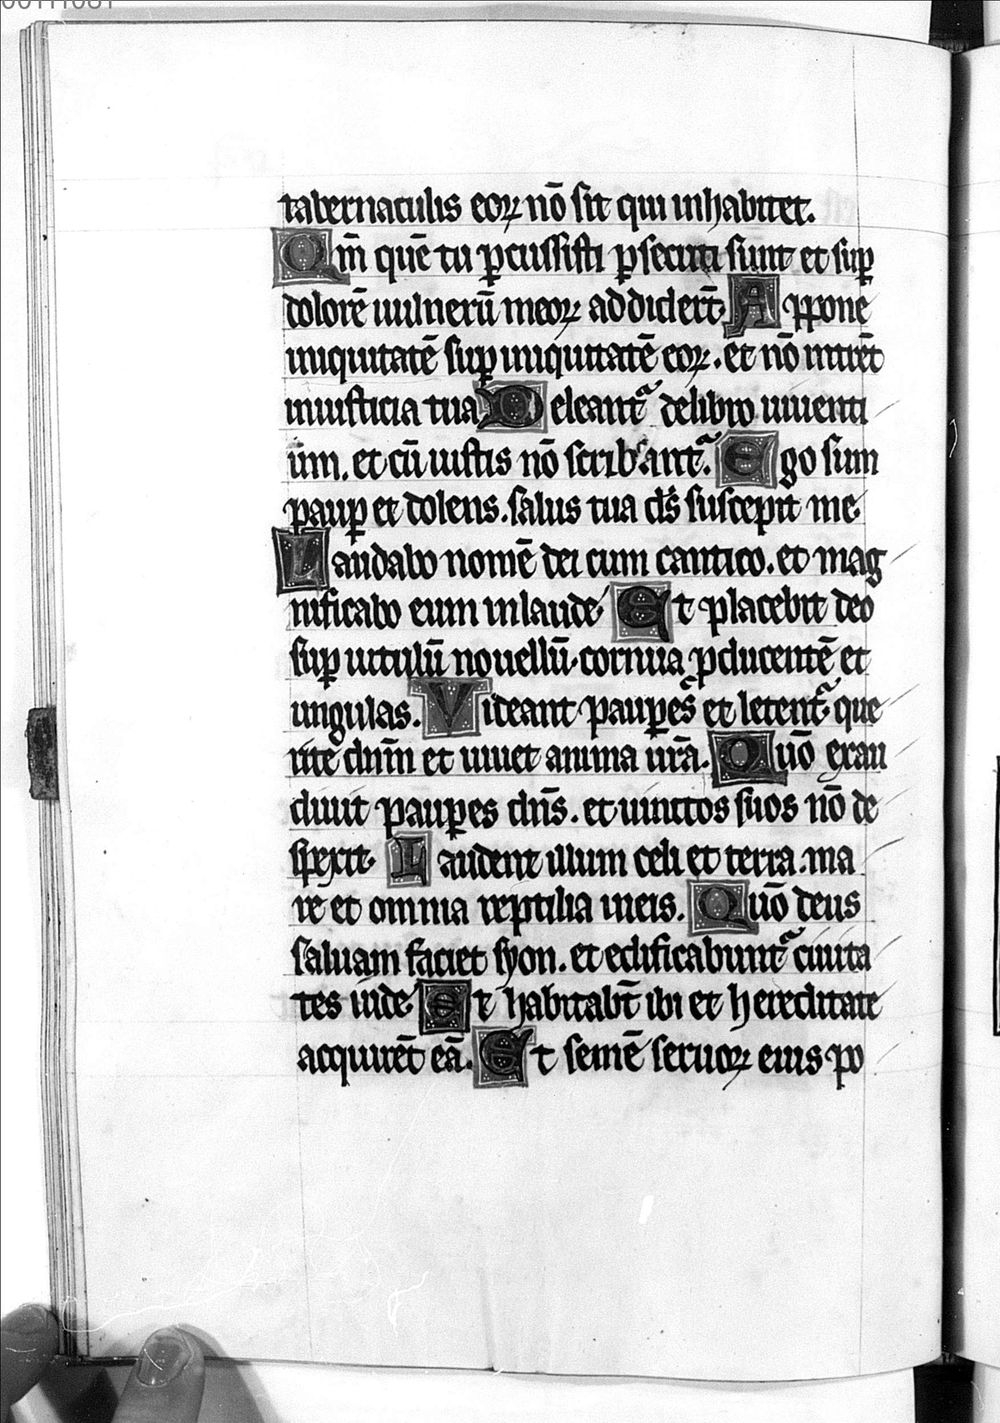 00111081
tabernaculis eoꝝ nō sit qui inhabitet.
Qm̄ quē tu ꝑcussisti ꝑsecuti sunt et suꝑ
dolorē uulnerū meoꝝ addidert̄. Appone
iniquitatē suꝑ iniquitatē eoꝝ. et nō intrēt
iniusticia tua Deleant᷑ de libro uiuenti
ūm. et cū iustis nō scribant᷑. Ego sum
pauꝑ et dolens. salus tua ds̄ suscepit me.
Laudabo nomē dei cum cantico. et mag
nificabo eum in laude. Et placebit deo
suꝑ uitulū nouellū. cornua ꝓducentē et
ungulas. Videant pauꝑes et letent᷑ que
rite dn̄m et uiuet anima ur̄a. Quō exau
diuit pauꝑes dn̄s. et uinctos suos nō de
spexit. Laudent illum celi et terra. ma
re et omnia reptilia in eis. Quō deus
saluam faciet syon. et edificabunt᷑ ciuita
tes iude. Et habitabt̄ ibi et hereditate
acquirēt eā. Et semē seruoꝝ eius po